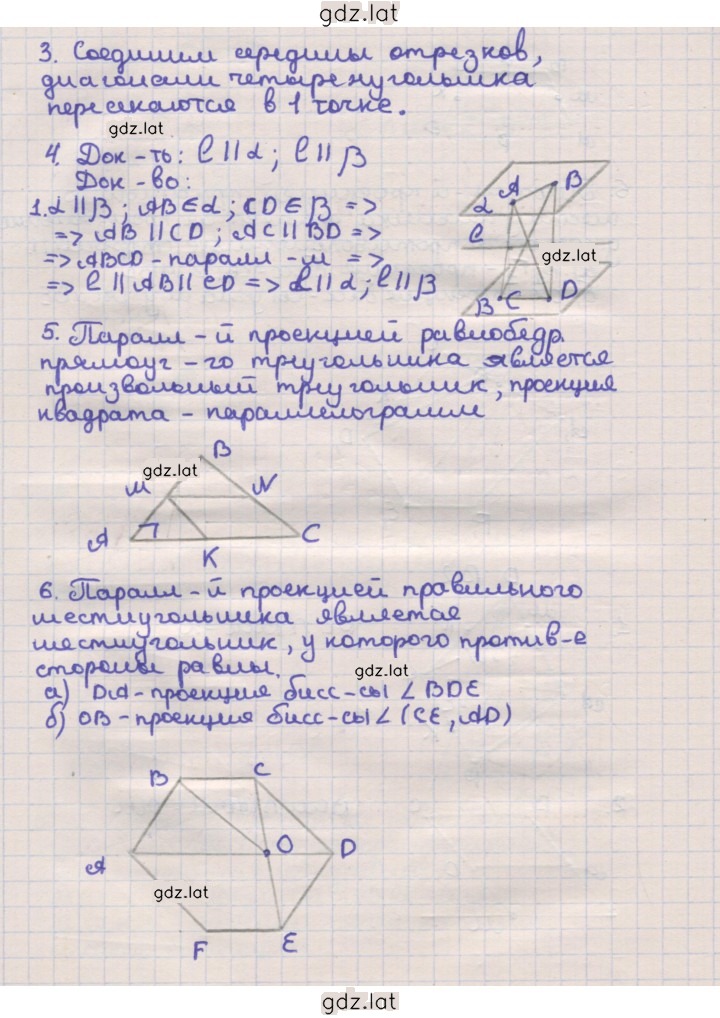 gdz.lat
3. Соединим середины отрезков,
диагонали четырехугольника
пересекаются в 1 точке.
gdz.lat
4. Док-ть: l || α ; l || β
Док-во:
1. α || β ; AB ∈ α ; CD ∈ β =>
=> AB || CD ; AC || BD =>
=> ABCD - паралл-м =>
=> l || AB || CD => l || α ; l || β
A B
α
l
gdz.lat
β C D
5. Паралл-й проекцией равнобедр.
прямоуг-го треугольника является
произвольный треугольник, проекция
квадрата - параллелограмм
B
gdz.lat
M N
A K C
6. Паралл-й проекцией правильного
шестиугольника является
шестиугольник, у которого против-е
стороны равны.
gdz.lat
а) DA - проекция бисс-сы ∠ BDE
б) OB - проекция бисс-сы ∠ (CE, AD)
B C
A O D
gdz.lat
F E
gdz.lat